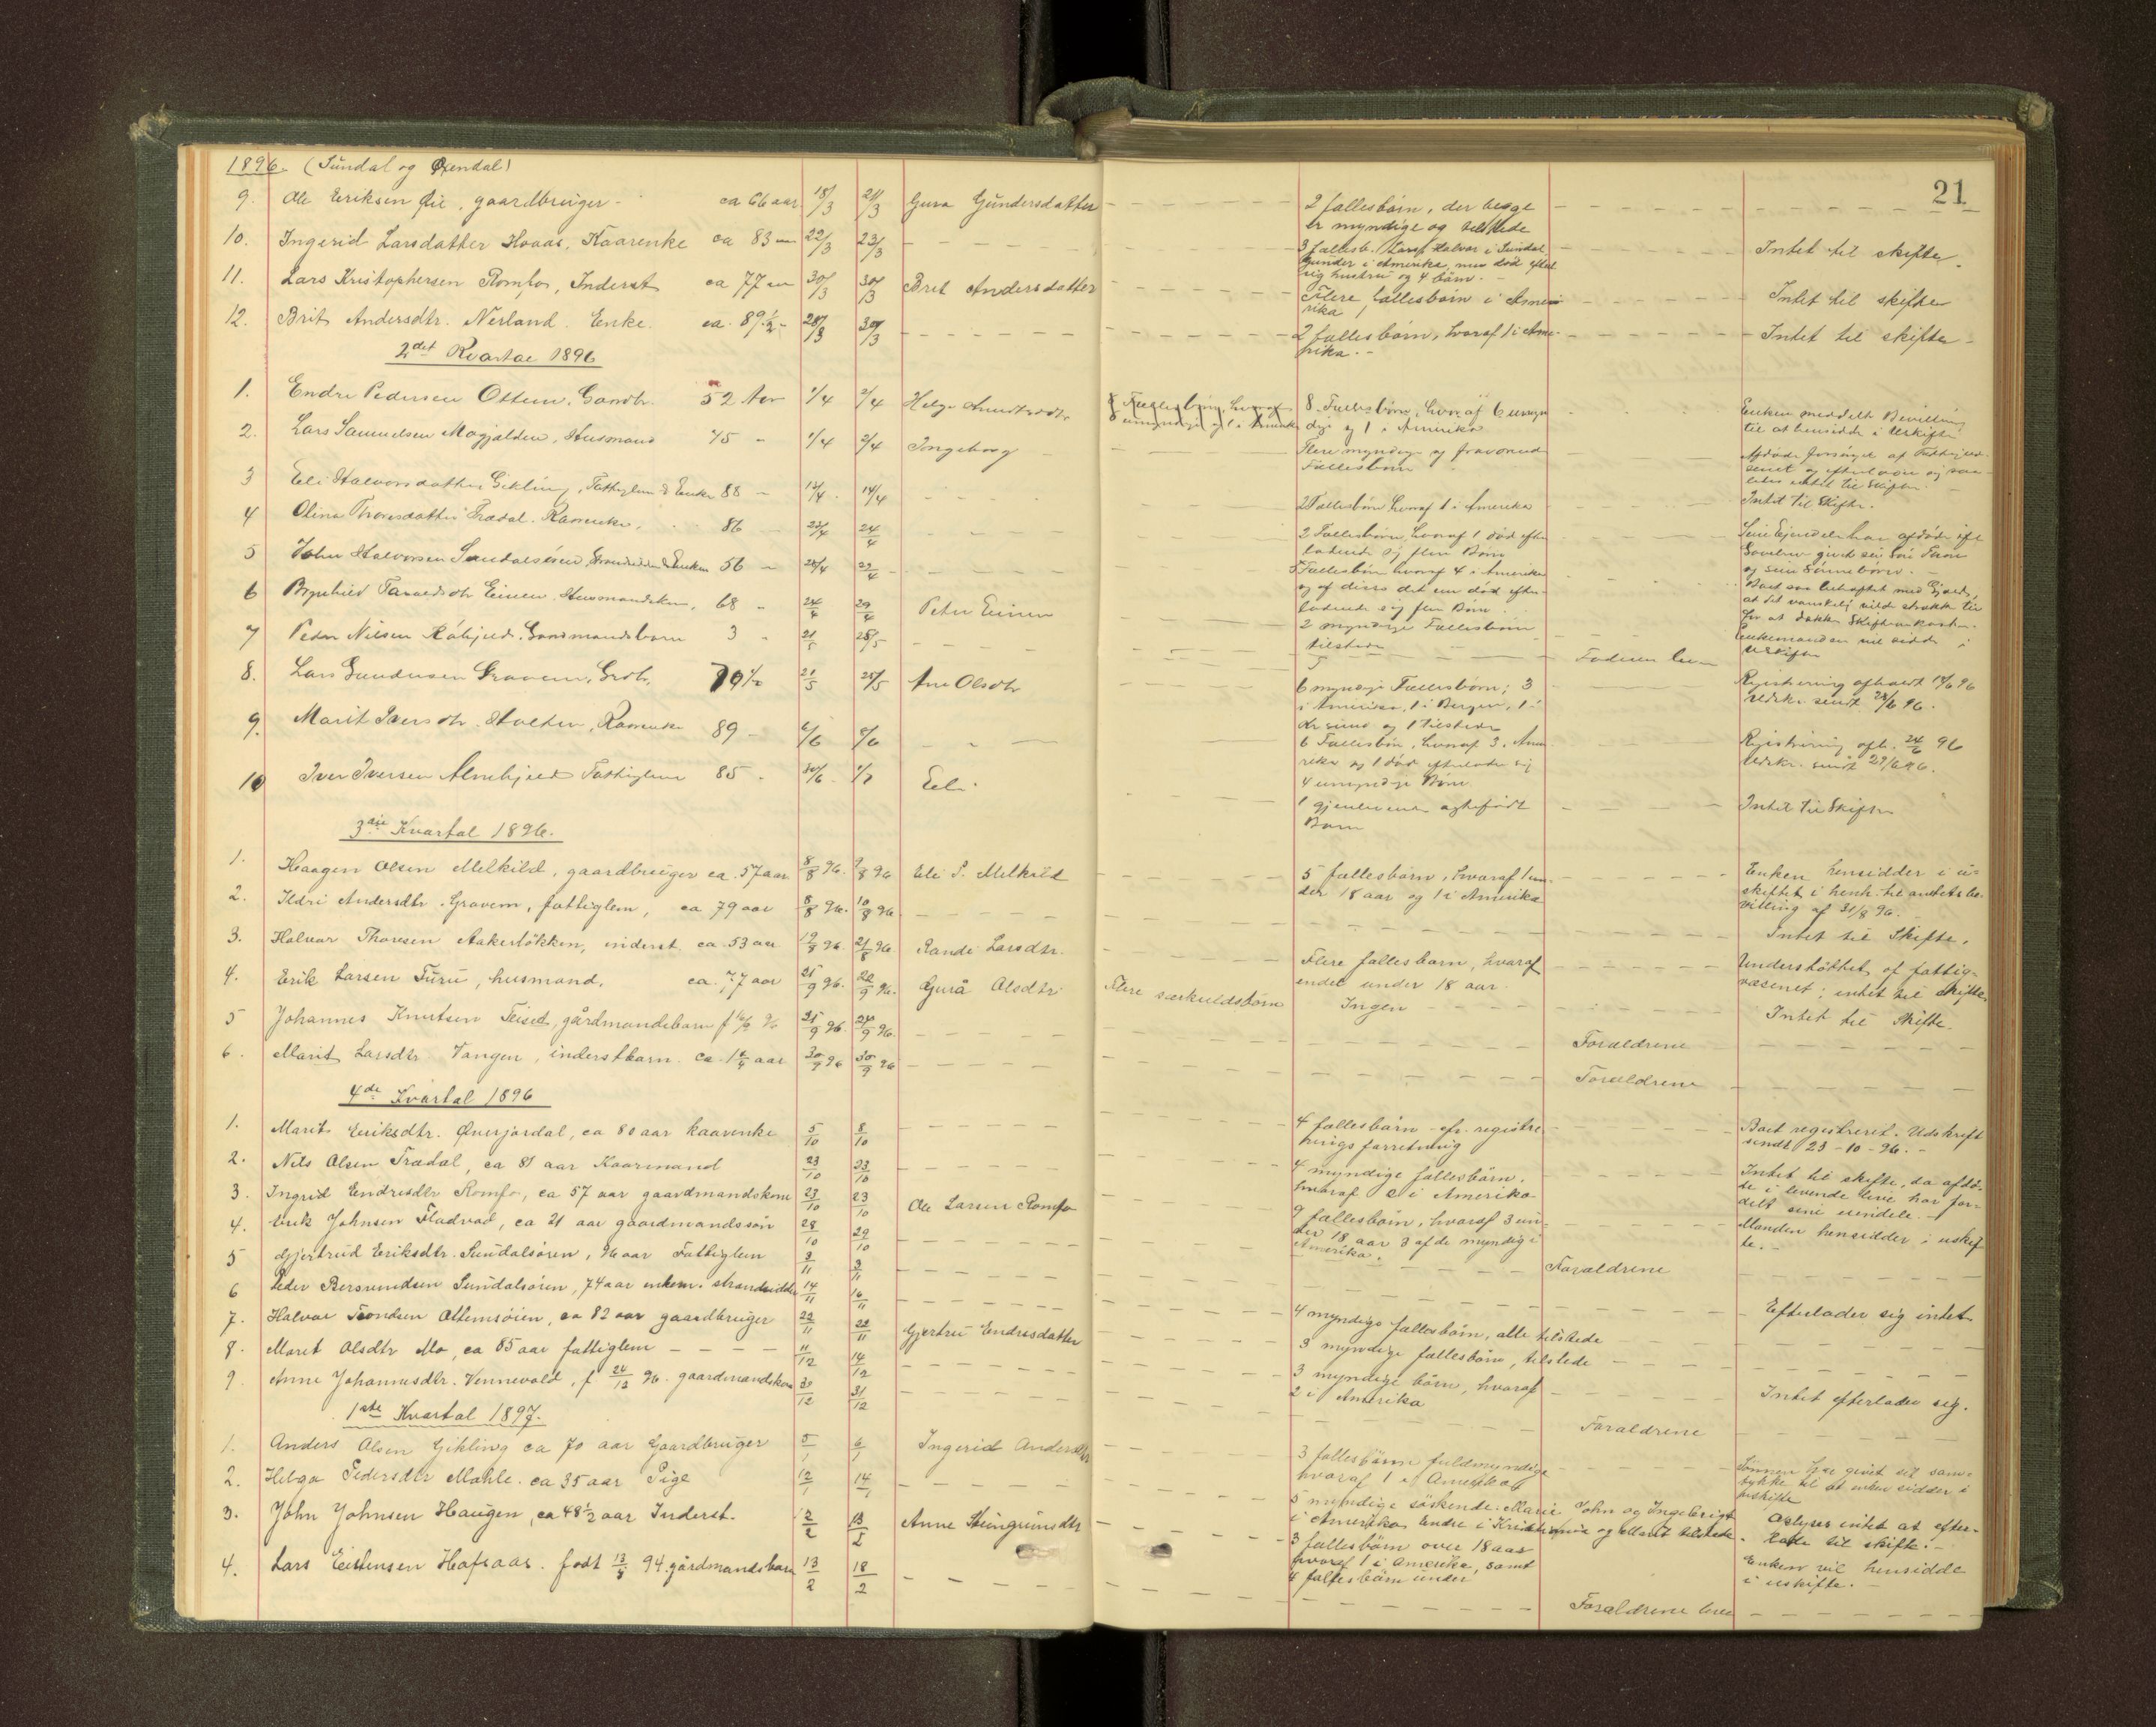 1896. (Sundal og Øxendal)
21
9. Ole Eriksen Øie, gaardbruger - ca 66 aar 18/3 21/3 Gura Gundersdatter 2 fællesbørn, der begge
er myndige og tilstede
10. Ingerid Larsdatter Hoaas, Kaarenke ca 83 aar 22/3 23/3 3 fællesb. Halvor i Sundal, Intet til skifte.
Gunder i Amerika, men død efterl.
sig hustru og 4 børn. -
11. Lars Kristophersen Romfo, Inderst ca 77 aar 30/3 30/3 Brit Andersdatter Flere fællesbørn i Ame- Intet til skifte
rika
12. Brit Andersdtr. Nerland. Enke. ca. 89 1/2 - 28/3 30/3 2 fællesbørn, hvoraf 1 i Ame- Intet til skifte -
rika. -
2det Kvartal 1896
1. Endre Pedersen Ottem, Gaardbr. 52 Aar 1/4 2/4 8 Fællesbørn, hvoraf 6 umyn- Enken meddelt Bevilling
dige og 1 i Amerika til at hensidde i Uskifte
2. Lars Samuelsen Mogjælden, Husmand 75 - 1/4 2/4 Ingeborg Flere myndige og fraværende
Fællesbørn
Afdøde forsørget af Fattigvæ-
senet og efterlader sig saa-
ledes intet til Skifte.
3 Eli Halvorsdatter Gikling, Fattiglem & Enke 88 - 14/4 2 Fællesbørn hvoraf 1 i Amerika Intet til Skifte.
4 Olina Thoresdatter Trædal. Kaarenke. 86 23/4 24/4 2 Fællesbørn, hvoraf 1 død efter-
ladende sig flere Børn
5 John Halvorsen Sundalsøren, Strandsidder & Enkem 56 - 29/4 5 Fællesbørn hvoraf 4 i Amerika
og af disse det ene død efter-
ladende sig flere Børn.
6 Brynhild Enkemanden vil sidde i
Uskifte
24/4 29/4 Peter Einen 2 myndige Fællesbørn
tilstede
68 -
7 Peder Nilsen Gaardmandsbarn 3 - 21/5 25/5 Faderen lever
8. Lars Gundersen Gravem, Grdbr. 79 1/2 21/5 25/5 Ane Olsdtr 6 myndige Fællesbørn; 3
i Amerika, 1 i Bergen, 1 i
Kr.sund og 1 tilstede
Registrering afholdt
Udskr. sendt
9. Marit Iversdtr. Holten, Kaarenke 89 - 6/6 6 Fællesbørn, hvoraf 3 i Ame-
rika og 1 død efterladende sig
4 umyndige Børn.
Registrering afh. 24/6 96
Udskr. sendt 29/6 96.
10 Iver Iversen Almskjeld Fattiglem 85 - 30/6 1/7 Eli 1 gjenlevende ægtefødt
Barn
Intet til Skifte
3die Kvartal 1896.
1. Haagen Olsen Melkild, gaardbruger ca. 57 aar 8/8 96. 9/8 96 Eli P. Melkild 5 fællesbørn, hvoraf 1 un-
der 18 aar og 1 i Amerika
Enken hensidder i u-
skiftet i henh. til amtets be-
villing af 31/8 96. -
2. Ildri Andersdtr. Gravem, fattiglem, ca 79 aar 8/8 96. 10/8 96. Intet til Skifte.
3. Halvor Thoresen Aakerløkken, inderst, ca. 53 aar 19/8 96. 21/8 96 Rande Larsdtr. Flere fælles børn, hvoraf
endel under 18 aar.
Understøttet af fattig-
væsenet; intet til skifte.
4. Erik Larsen Furu, husmand, ca. 77 aar 21/9 96. 22/9 96. Gurå Olsdtr. Flere særkuldsbørn Ingen Intet til skifte.
5 Johannes Knutsen Feised, gårdmandsbarn 21/9 96. 24/9 96. Forældrene
6. Marit Larsdtr Vangen, inderstbarn. ca. 1 1/4 aar 30/9 96 30/9 96 Forældrene
4de Kvartal 1896
1. Marit Eriksdtr. Øverjordal, ca 80 aar kaarenke 5/10 8/10 4 fællesbørn - cfr. registre-
rings forretning
Boet registreret. Udskrift
sendt 23-10-96. -
2. Nils Olsen Trædal, ca 81 aar Kaarmand 23/10 23/10 4 myndige fællesbørn.
hvoraf 2 i Amerika
Intet til skifte, da afdø-
de i levende live har for-
delt sine eiendele. -
3. Ingrid Endresdtr Romfo, ca 57 aar gaardmandskone 23/10 23/10 Ole Larsen Romfo 9 fællesbørn, hvoraf 3 un-
der 18 aar 3 af de myndige i
Amerika.
Manden hensidder i uskif-
te. -
4. Erik Johnsen Fladvad, ca 21 aar gaardmandssøn 28/10 29/10 Forældrene
5 Gjertrud Eriksdtr. Sundalsøren, 96 aar Fattiglem 3/11 3/11 Efterlader sig intet
6 Peder Bersvendsen Sundalsøren, 74 aar enkem. strandsidder 14/11 16/11 4 myndige fællesbørn, alle tilstede
7. Halvor Trondsen Ottemsøien, ca 82 aar gaardbruger 22/11 22/11 Gjertru Endresdatter 3 myndige fællesbørn, tilstede
8. Marit Olsdtr Mo, ca 85 aar fattiglem 11/12 14/12 3 myndige børn, hvoraf
2 i Amerika
Intet efterlader sig.
9. Anne Johannesdtr. Vennevold, f 24/12 96. gaardmandsbarn 30/12 31/12 Forældrene
1ste Kvartal 1897.
1. Anders Olsen Gikling ca 70 aar Gaardbruger 5/1 6/1 Ingerid Andersdtr 3 fællesbørn fuldmyndige
hvoraf 1 i Amerika
Sønnen har givet sit sam-
tykke til at enken sidder i
uskifte
2. Helga Pedersdtr Mahle. ca 35 aar Pige 12/1 14/1 5 myndige søskende: Marie John og Ingebrigt
i Amerika Endre i Kristiansund og Marit tilstede.
Oplyses intet at efter-
lade til skifte. -
3. John Johnsen Haugen, ca 48 1/2 aar Inderst. 2/2 Anne Steingrimsdtr 3 fællesbørn over 18 aar
hvoraf 1 i Amerika, samt
4 fællesbørn under
Enken vil hensidde
i uskifte. -
4. Lars Eistensen Hafsaas. født 94 gårdmandsbarn 13/2 18/2 Forældrene lever